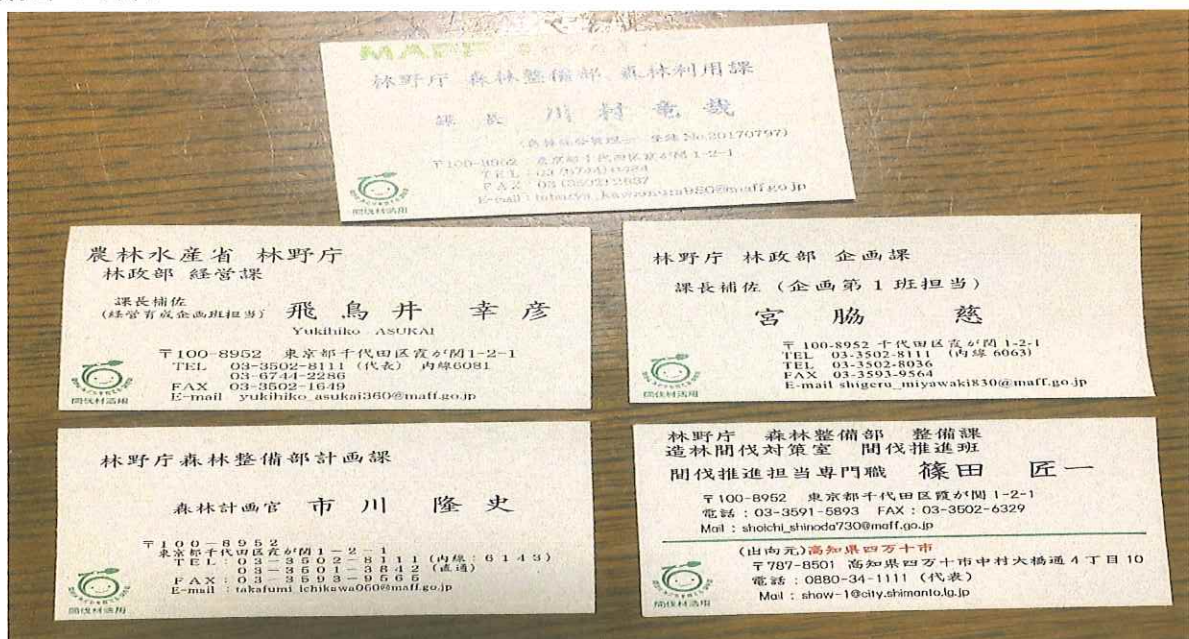 MAFF
林野庁 森林整備部 森林利用課
課長 川村竜哉
〒100-8952 東京都千代田区霞が関1-2-1
TEL : 03 (6744)
FAX 03 (3502) 2887
間伐材活用
農林水産省 林野庁
林政部 経営課
課長補佐
(経営育成企画班担当) 飛鳥井 幸彦
Yukihiko ASUKAI
〒100-8952 東京都千代田区霞が関1-2-1
TEL 03-3502-8111 (代表) 内線6081
03-6744-2286
FAX 03-3502-1649
E-mail yukihiko_asukai360@maff.go.jp
間伐材活用
林野庁 林政部 企画課
課長補佐 (企画第1班担当)
宮脇 慈
〒100-8952 千代田区霞が関1-2-1
TEL 03-3502-8111 (内線 6063)
TEL 03-3502-8036
FAX 03-3593-9564
E-mail shigeru_miyawaki830@maff.go.jp
間伐材活用
林野庁森林整備部計画課
森林計画官 市川 隆史
〒100-8952
東京都千代田区霞が関1-2-1
TEL:03-3502-8111 (内線:6143)
03-3501-3842 (直通)
FAX:03-3593-9565
E-mail : takafumi_ichikawa060@maff.go.jp
間伐材活用
林野庁 森林整備部 整備課
造林間伐対策室 間伐推進班
間伐推進担当専門職 篠田 匠一
〒100-8952 東京都千代田区霞が関1-2-1
電話 : 03-3591-5893 FAX : 03-3502-6329
Mail : shoichi_shinoda730@maff.go.jp
(出向元)高知県四万十市
〒787-8501 高知県四万十市中村大橋通4丁目10
電話 : 0880-34-1111 (代表)
Mail : show-1@city.shimanto.lg.jp
間伐材活用